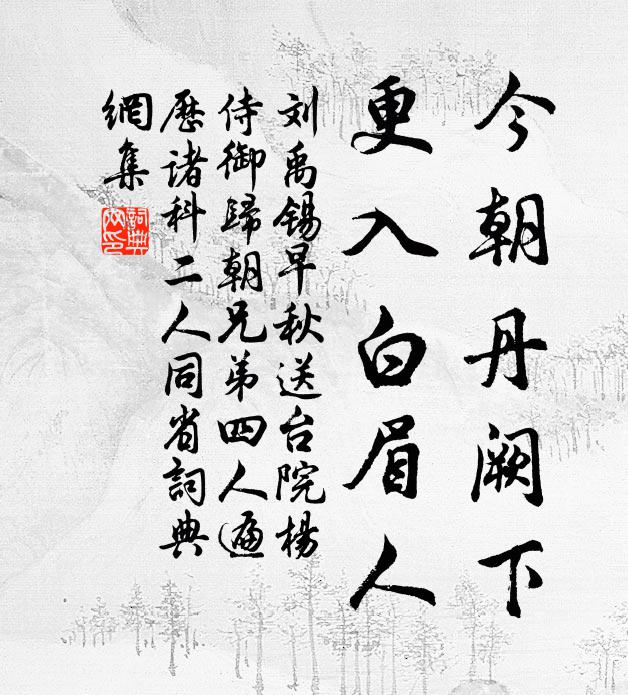 今朝丹阙下
更入白眉人
刘禹锡早秋送台院楊
侍御歸朝兄弟四人遍
歷诸科二人同省詞典
網集
詞典
网印